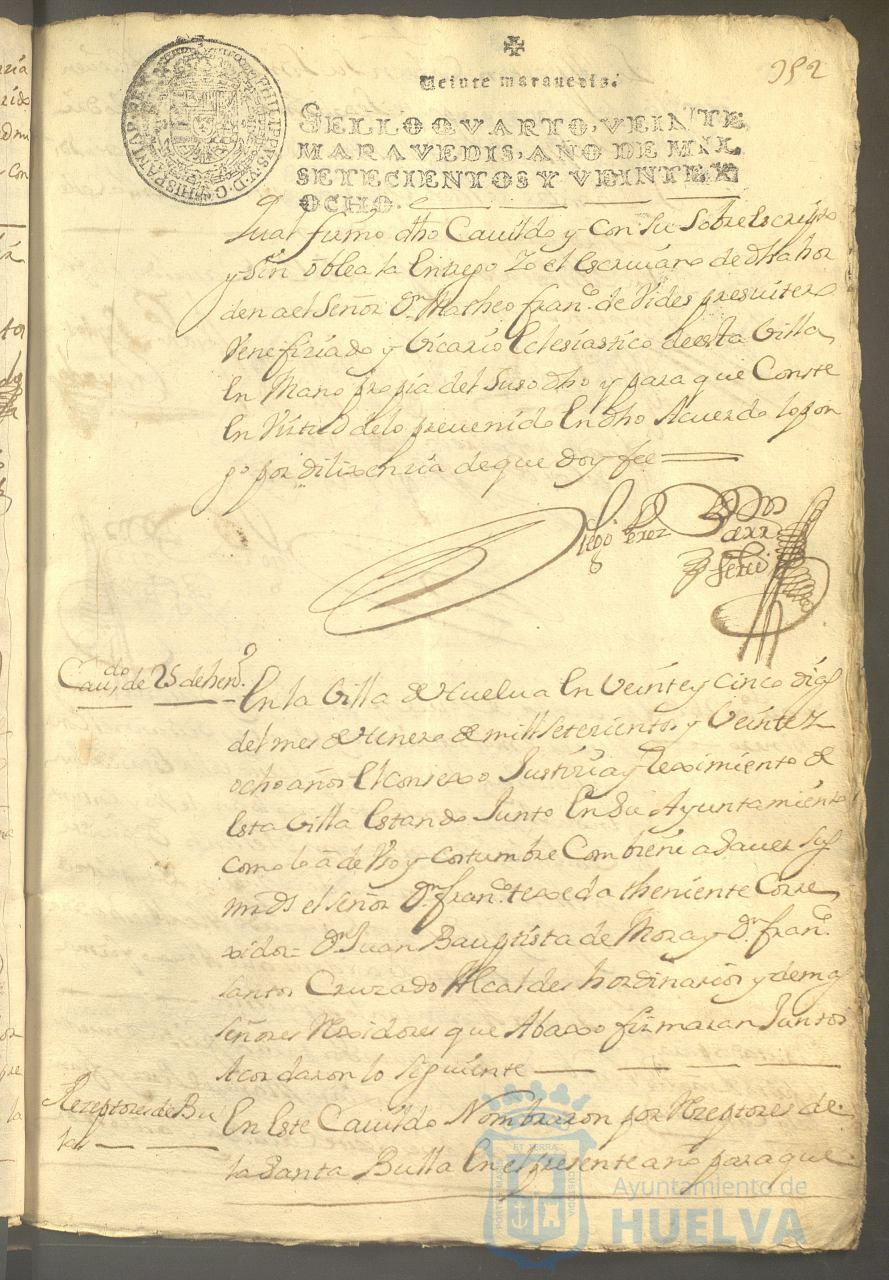 352
PHILIPPUS V D G HISPANIAR REX
Veinte marauedis.
SELLO QVARTO, VEINTE
MARAVEDIS, AÑO DE MIL
SETECIENTOS Y VEINTE Y
OCHO.
qual firmo dho Cauildo y Con Su Sobre Escripto
y Sin oblea la Entrego Yo el Escriuano de dha hor
den a el Señor Dn. Matheo franco. de Vides presuitero
Venefiziado y Vicario Eclesiastico de esta Villa
En Mano propia del Suso dho y para que Conste
En Virtud de lo preuenido En dho Acuerdo lo pon
go por dilixenzia de que doy fee
Diego Perez
Cauildo. de 25 de henro.
En la Villa de Huelua En Veinte y cinco dias
del mes de Henero de mill setezientos y Veinte y
ocho años El Consexo Justizia y Reximiento de
Esta Villa Estando Junto En Su Ayuntamiento
como lo a de Vso y Costumbre Combiene a Sauer Sus
mrds el señor Dn. franco. texeda theniente Corre
xidor = Dn. Juan Bauptista de Mora y Dn. franco.
santos Cruzado Alcaldes hordinarios y demas
señores Rexidores que Abaxo firmaran Juntos
Acordaron lo siguiente
Rezeptores de Bu
las
En Este Cauildo Nombraron por Rezeptores de
la Santa Bulla En el presente año para que
Ayuntamiento de
HUELVA